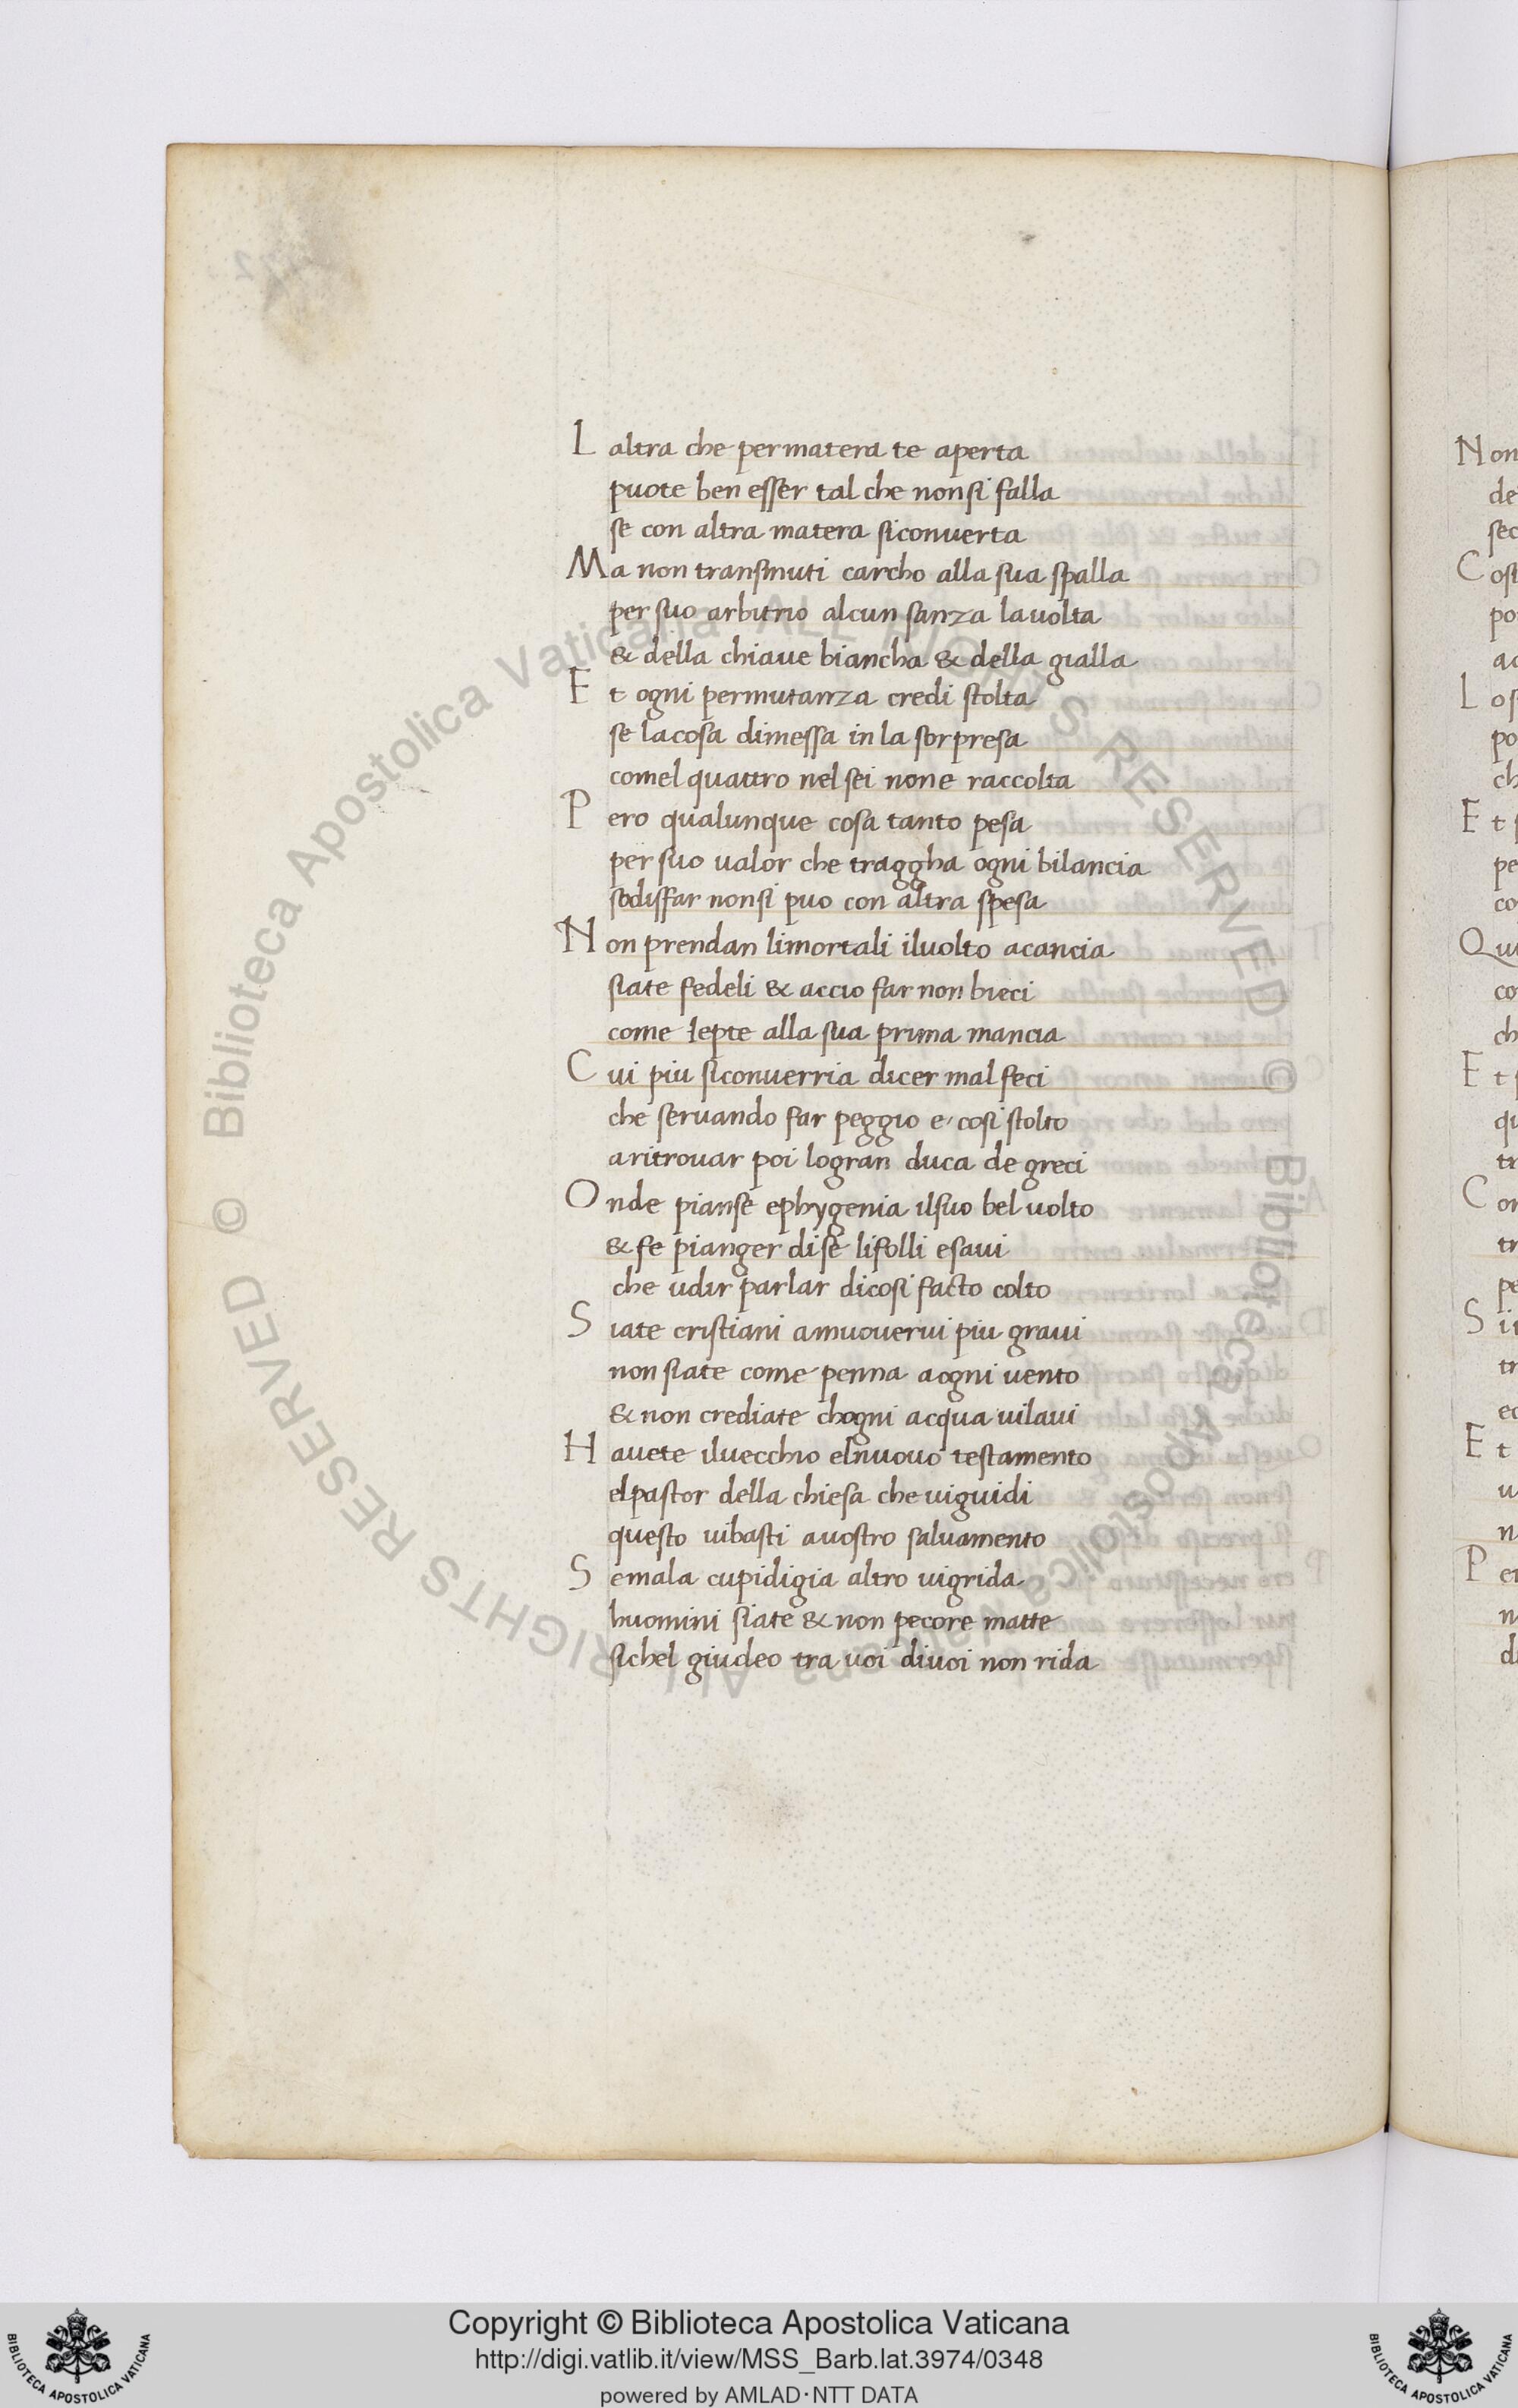 L altra che per matera te aperta
puote ben esser tal che non si falla
se con altra matera si conuerta
M a non transmuti carcho alla sua spalla
per suo arbitrio alcun sanza la uolta
& della chiaue biancha & della gialla
E t ogni permutanza credi stolta
se la cosa dimessa in la sorpresa
comel quattro nel sei none raccolta
P ero qualunque cosa tanto pesa
per suo ualor che traggha ogni bilancia
sodisfar non si puo con altra spesa
N on prendan li mortali il uolto a cancia
siate fedeli & accio far non bieci
come Iepte alla sua prima mancia
C ui piu si conuerria dicer mal feci
che seruando far peggio e cosi stolto
a ritrouar poi lo gran duca de greci
O nde pianse ephygenia il suo bel uolto
& fe pianger di se li folli e saui
che udir parlar di cosi facto colto
S iate cristiani a muouerui piu graui
non siate come penna a ogni uento
& non crediate chogni acqua ui laui
H auete il uecchio el nuouo testamento
el pastor della chiesa che ui guidi
questo ui basti a uostro saluamento
S e mala cupidigia altro ui grida
huomini siate & non pecore matte
si chel giudeo tra uoi di uoi non rida
N on
C ost
E t
S ii
E t
© Biblioteca Apostolica Vaticana ALL RIGHTS RESERVED © Biblioteca Apostolica Vaticana ALL RIGHTS RESERVED
Copyright © Biblioteca Apostolica Vaticana
http://digi.vatlib.it/view/MSS_Barb.lat.3974/0348
powered by AMLAD·NTT DATA
BIBLIOTECA APOSTOLICA VATICANA
BIBLIOTECA APOSTOLICA VATICANA